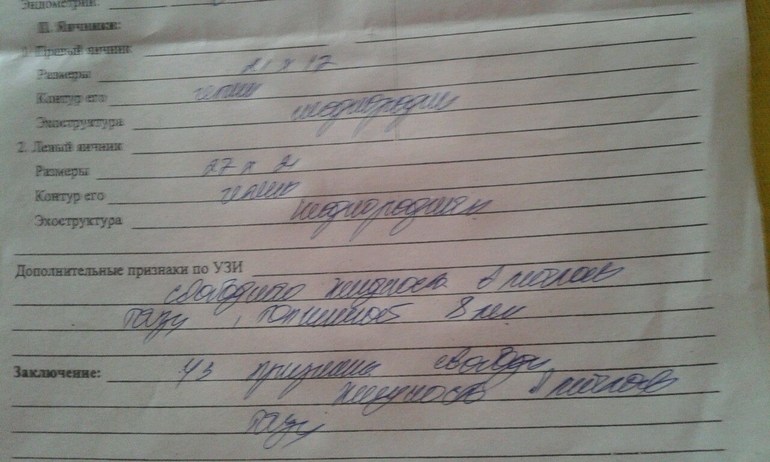 Эндометрий:
II. Яичники:
1. Правый яичник
Размеры 21 x 17
Контур его
Эхоструктура неоднородн
2. Левый яичник
Размеры 27 x 21
Контур его
Эхоструктура неоднородн
Дополнительные признаки по УЗИ
свободная жидкость в малом
тазу, толщиной 8 мм
Заключение: УЗ признаки свободн
жидкость в малом
тазу